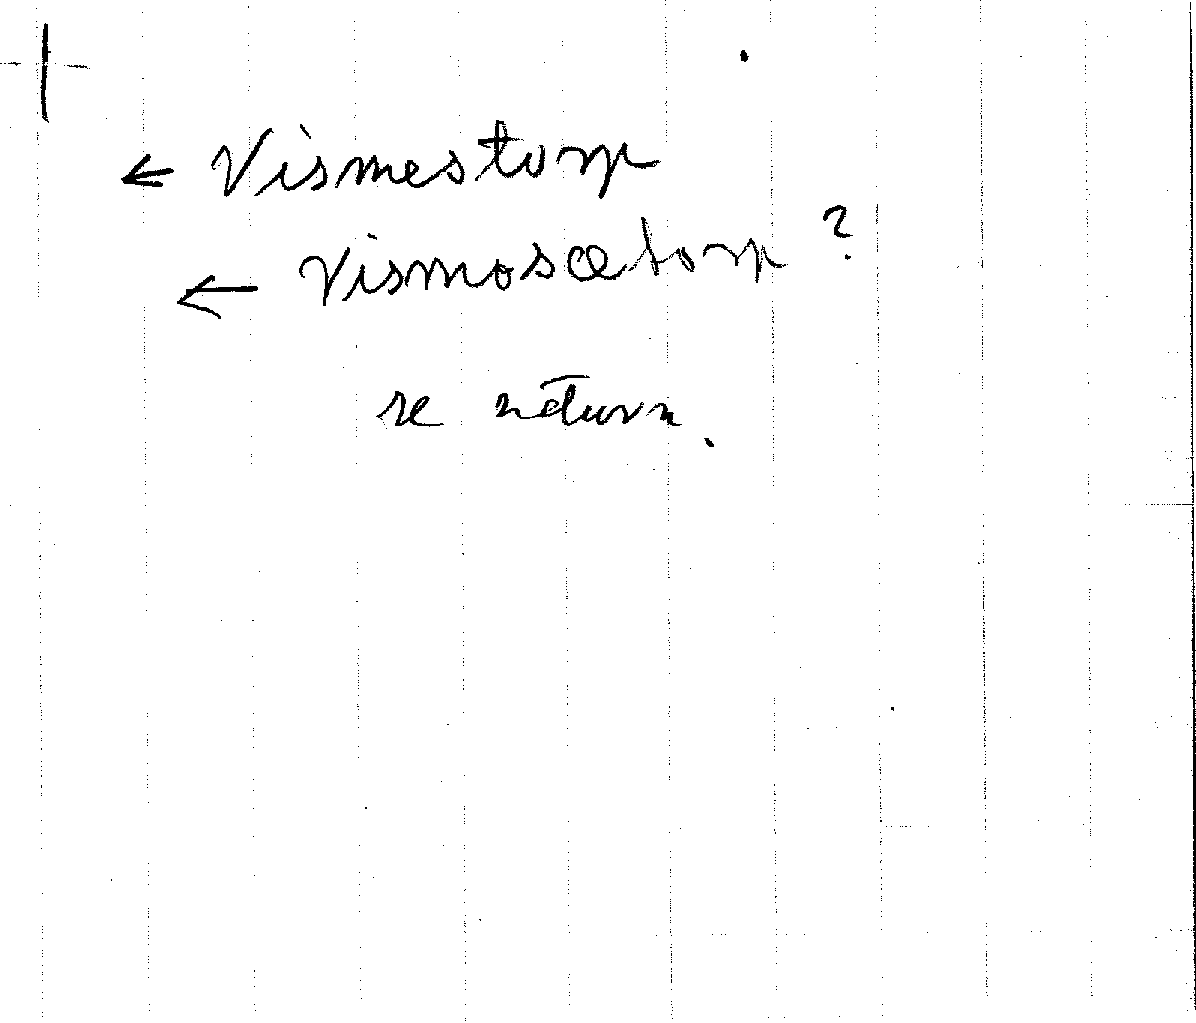 ← Vismestorp
← Vismosætorp?
se naturn.